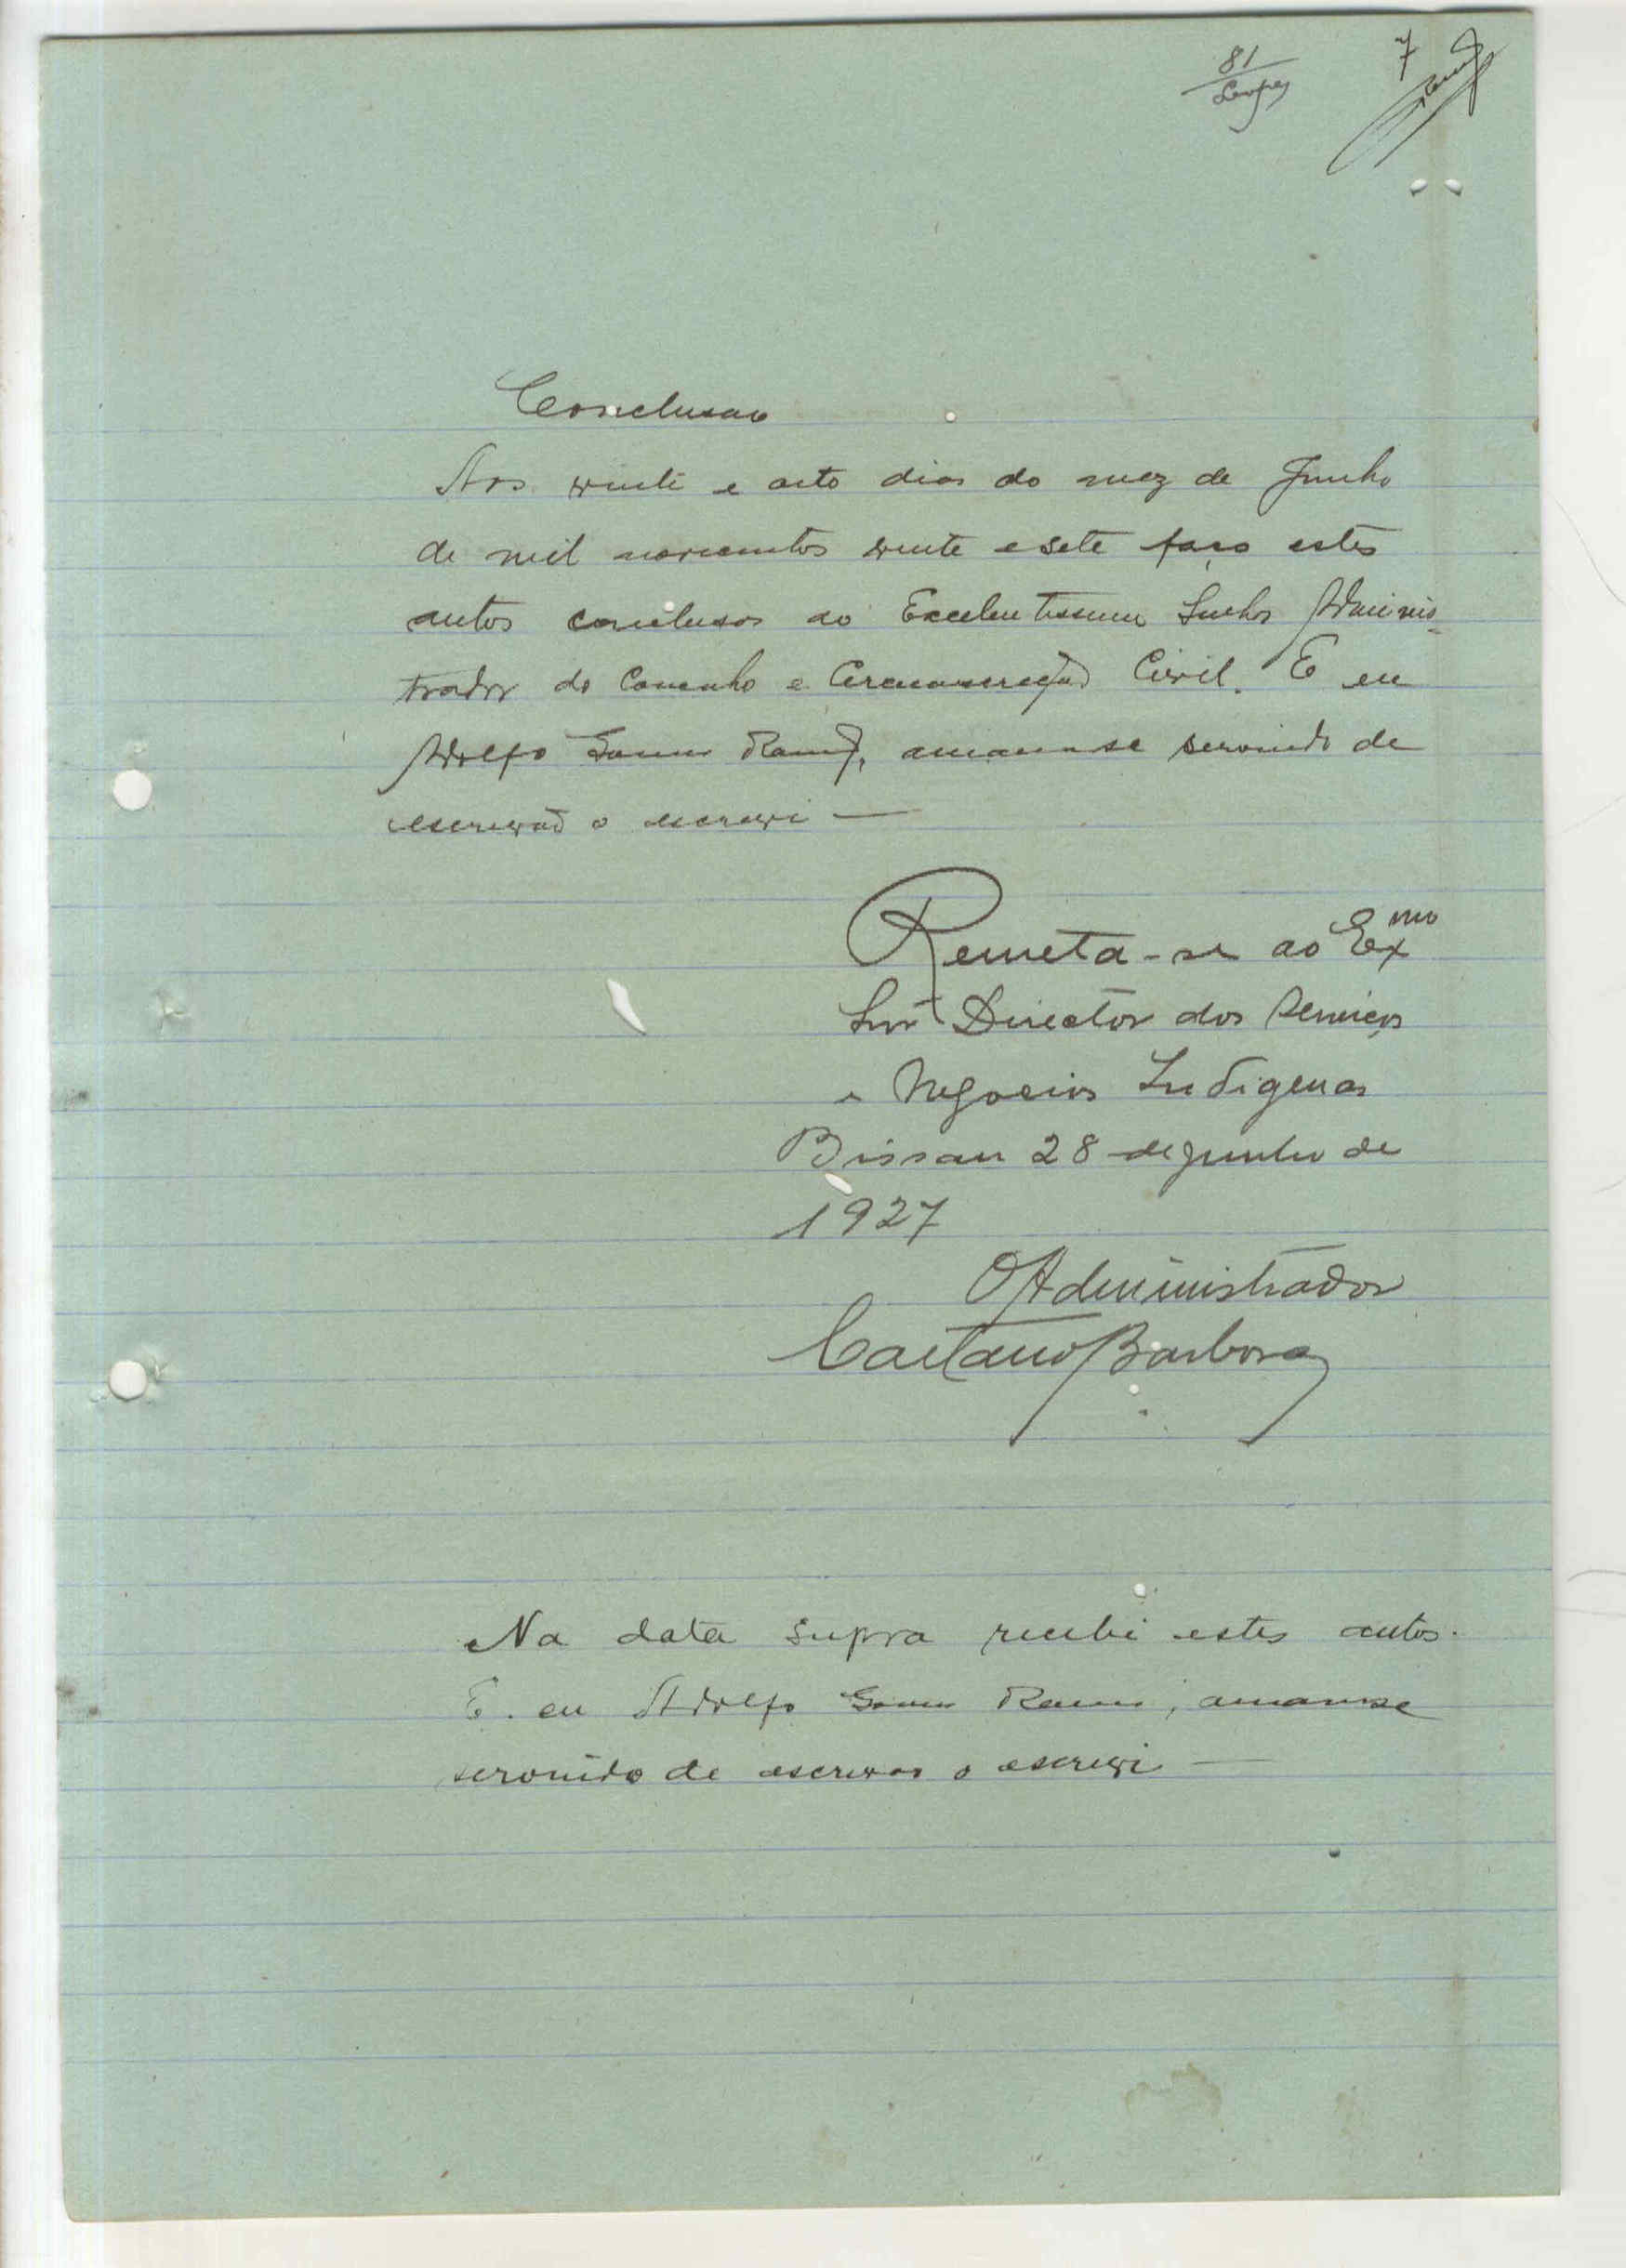 81
Lopes
7
Ramos
Conclusão
Aos vinte e oito dias do mez de Junho
de mil novecentos vinte e sete faço estes
autos conclusos ao Excelentissimo Senhor Adminis-
trador do Concelho e Circunscrição Civil. E eu
Adolfo Gomes Ramos, amanuense servindo de
escrivão o escrevi —
Remeta-se ao Exmo
Snr Director dos Serviços
e Negocios Indigenas
Bissau 28 de junho de
1927
O Administrador
Caetano Barbosa
Na data supra recebi estes autos.
E. eu Adolfo Gomes Ramos, amanuense
servindo de escrivão o escrevi —